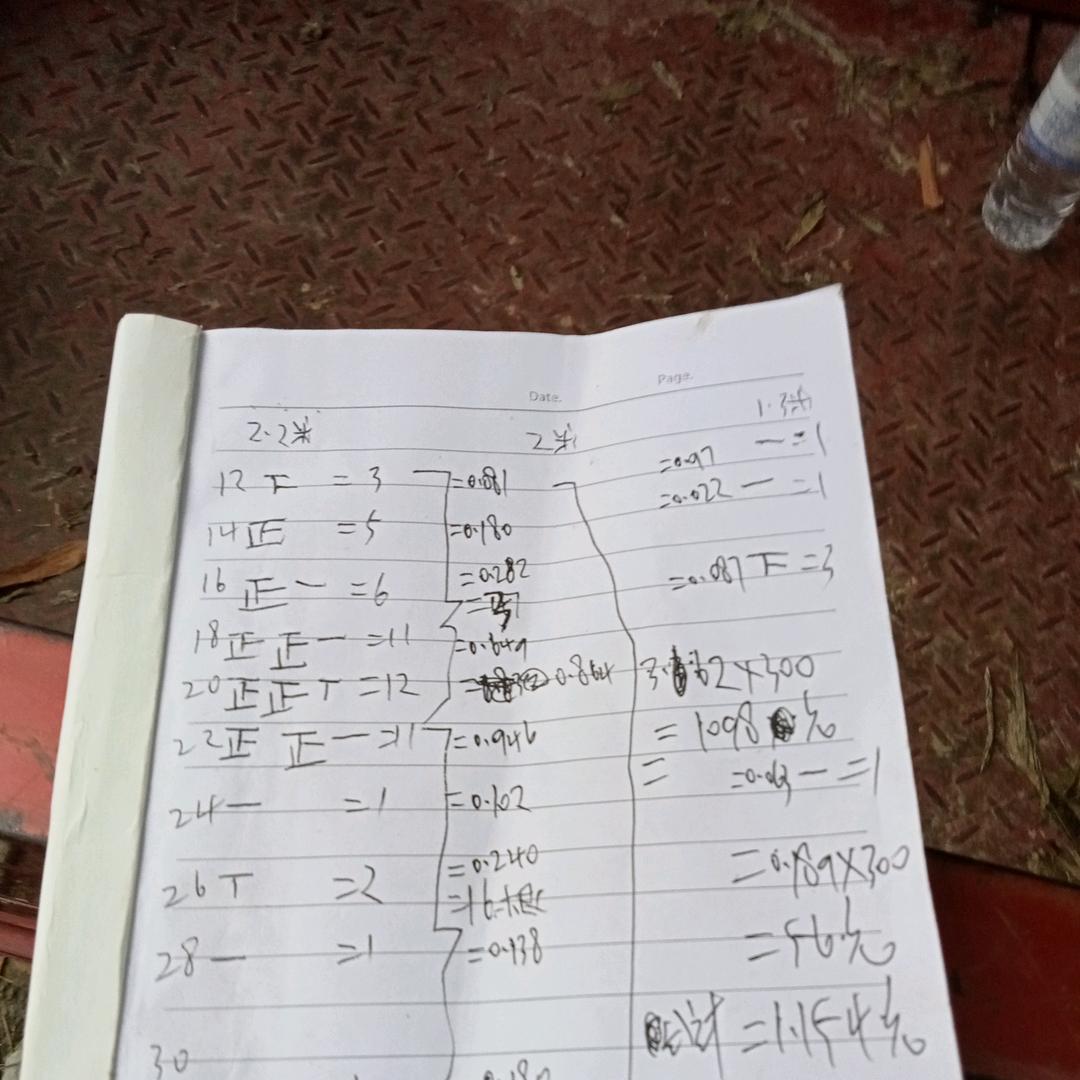 Date.
Page.
2.2米 2米 1.3米
12 下 = 3 =0.081 =0.97 一 = 1
14 正 = 5 =0.180 =0.022 一 = 1
16 正一 = 6 =0.282 =0.087 下 = 3
18 正正一 = 11 =0.649
20 正正丅 = 12 0.864 3.662×300
22 正正一 = 11 =0.946 =1098元
24 一 = 1 =0.102 = =0.063 一 = 1
26 丅 = 2 =0.240 =0.189×300
=16
28 一 = 1 =0.138 =56元
计 =1.154元
30